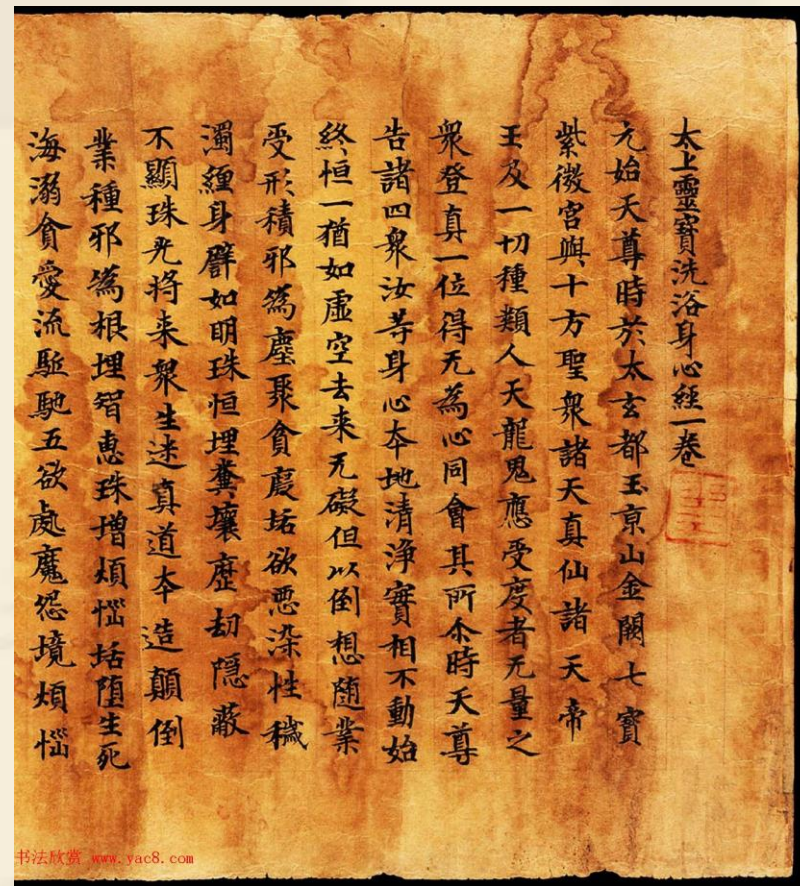 太上靈寶洗浴身心經一卷
元始天尊時於太玄都玉京山金闕七寶
紫微宮與十方聖衆諸天真仙諸天帝
王及一切種類人天龍鬼應受度者无量之
衆登真一位得无為心同會其所尒時天尊
告諸四衆汝等身心夲地清淨實相不動始
終恒一猶如虛空去来无礙但以倒想随業
受形積邪為塵聚貪爲垢欲惡染性穢
濁纏身譬如明珠恒埋糞壤歷劫隠蔽
不顯珠光将来衆生迷真道夲造顛倒
業種邪為根埋智恵珠增煩惱垢墮生死
海溺貪愛流駈馳五欲處魔怨境煩惱
书法欣赏 www.yac8.com